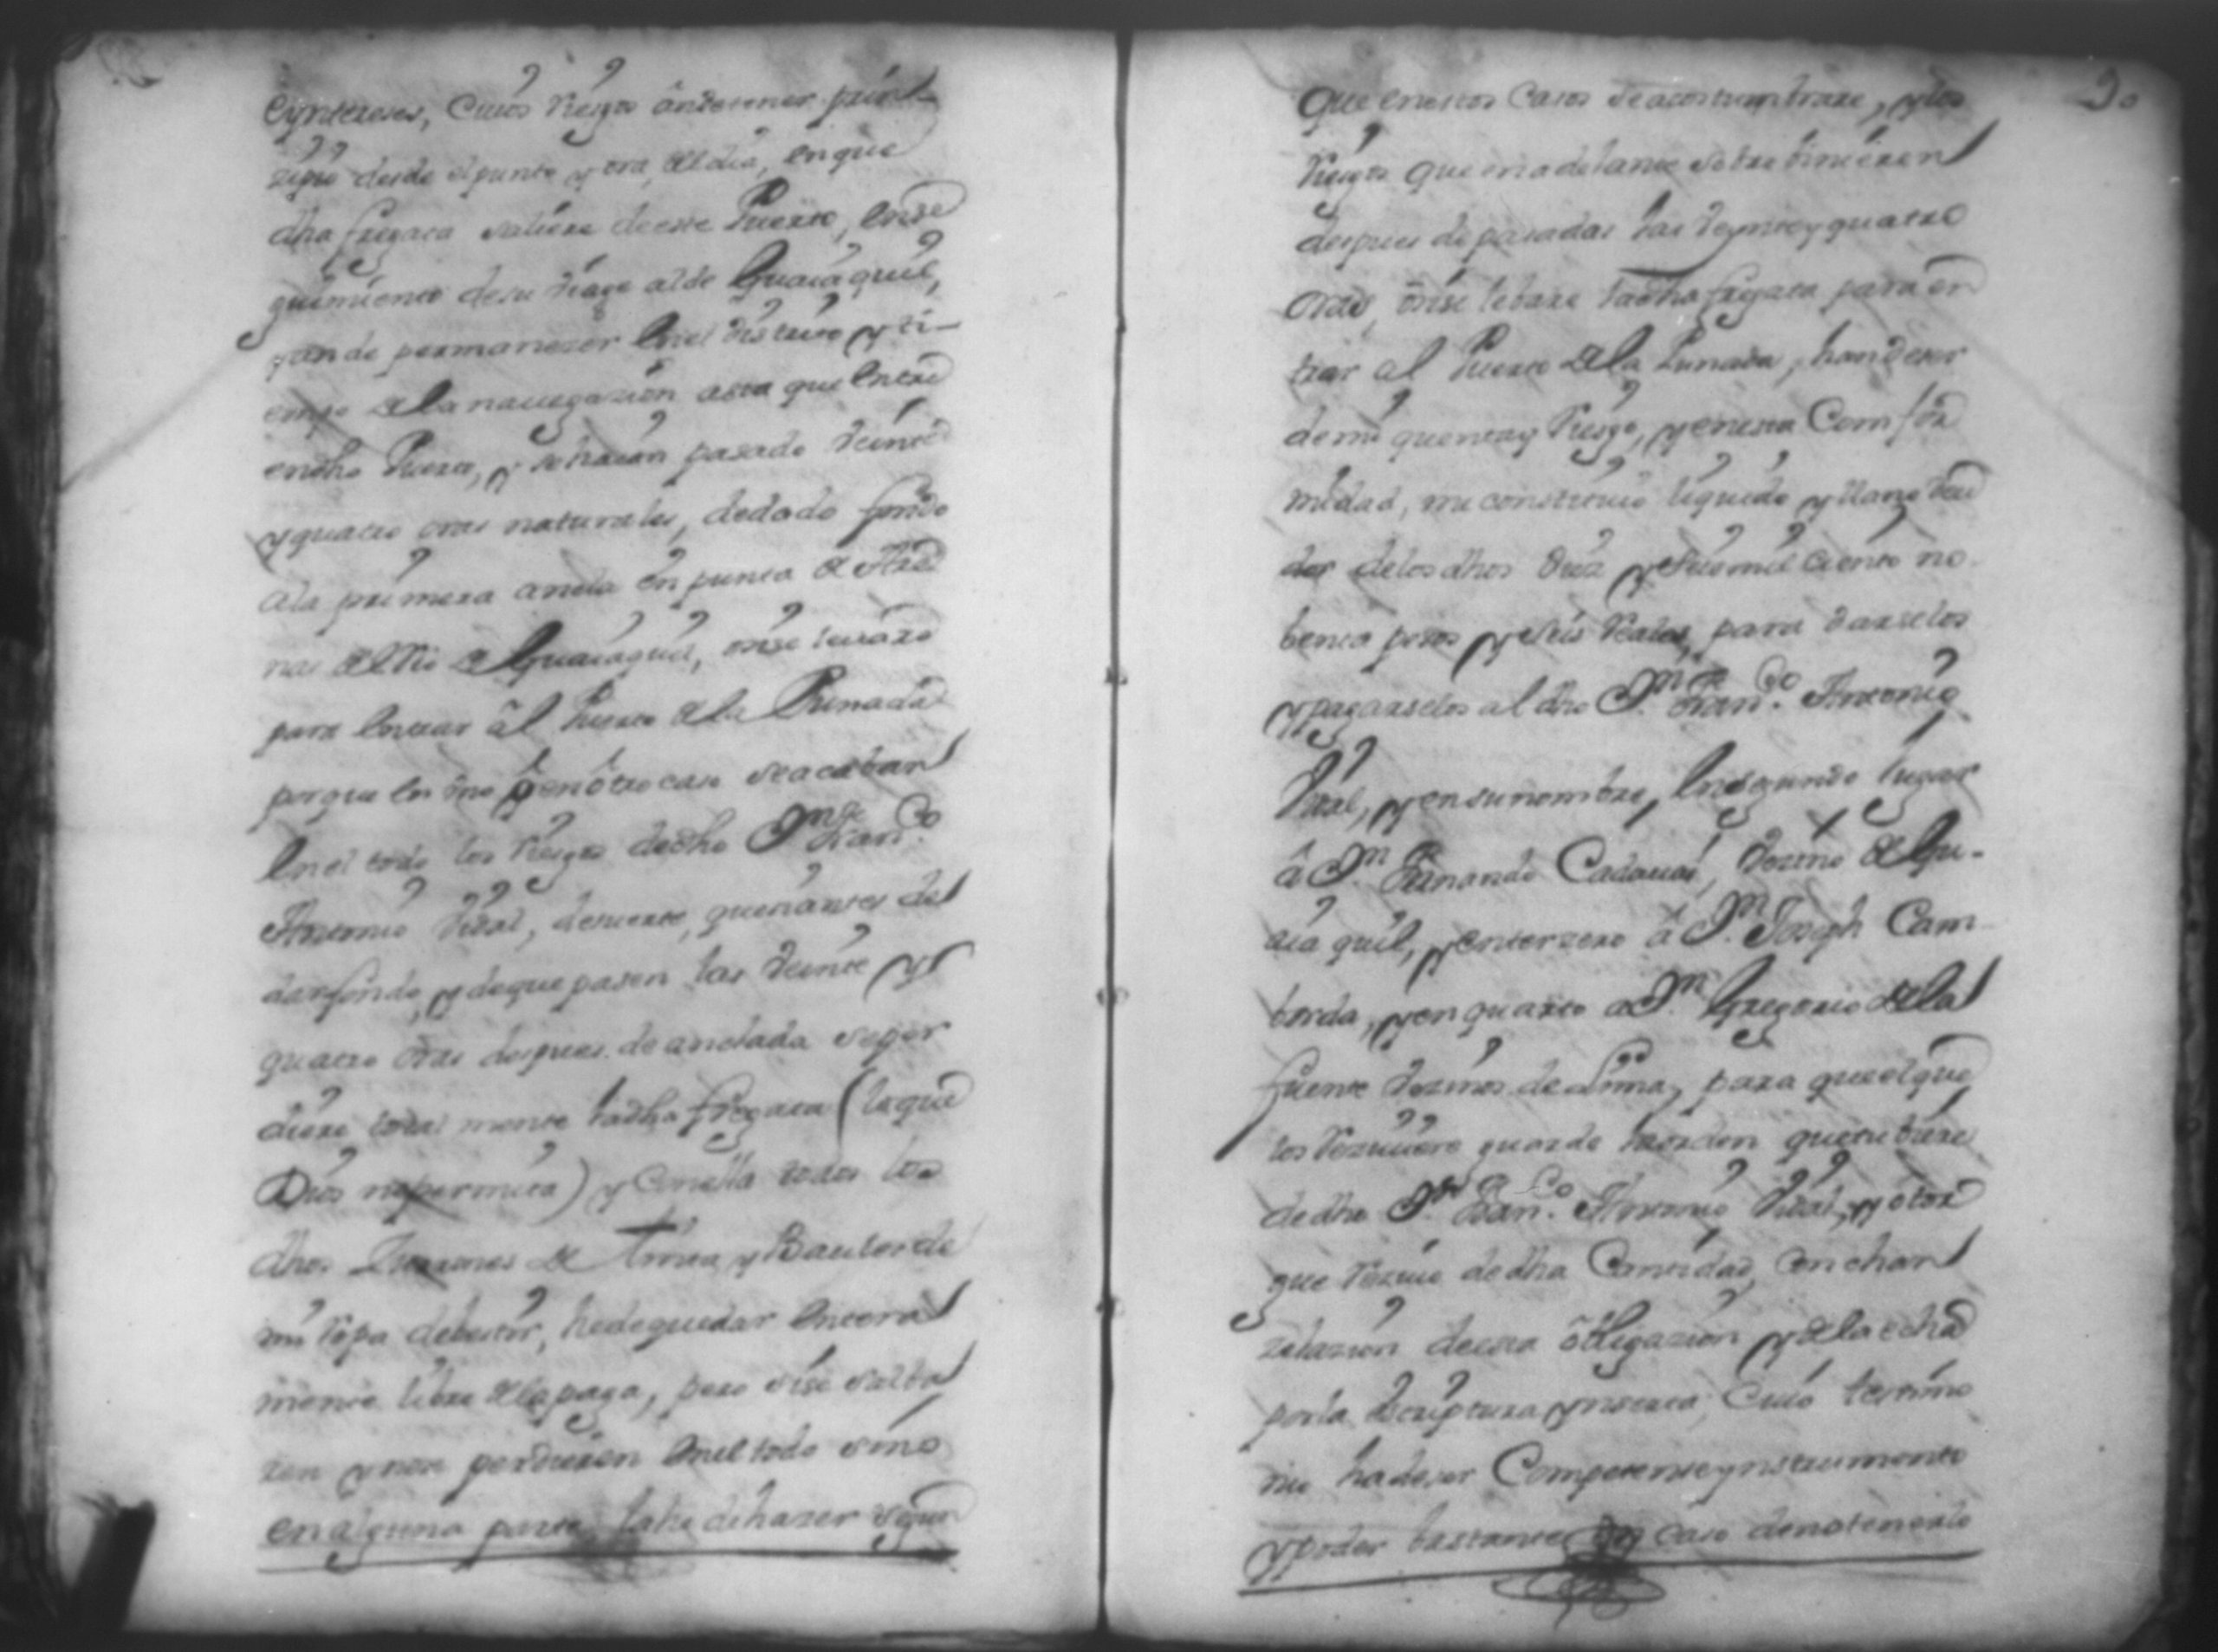 eyntereses, cuios Riesgos ândetener prin-
zipio desde el punto y ora, del dia, en que
dha fregata saliere de este Puerto, en se
guimiento de su viage al de Guaiaquil,
yande permanezer en el distrito y ti-
empo de la nauegazion asta que entre
en dho Puerto, y se haian pasado veinte
y quatro oras naturales, de dado fondo
a la primera ancla en punta de Are
nas del Rio de Guaiaquil, ônse leuare
para entrar âl Puerto de la Punada
porque en vno y en ôtro caso se acaban
en el todo los Riesgos de dho Dn Franco
Antonio Vital, de suerte, que si antes de
dar fondo, y de que pasen las veinte y
quatro ôras despues de anclada se per
diere total mente la dha fregata (lo que
Dios no permita) y con ella todos los
dhos Zurrones de tinta y Baules de
mi ropa de bestir, he de quedar entera
mente libre de la paga, pero si se salba
ren y no se perdieren en el todo sino
en alguna parte, la he de hazer segun
que en estos casos se acostumbrare, y los
Riesgos que en adelante sobre binieren
despues de pasadas las veynte y quatro
oras, ônse lebare la dha fregata para en
trar al Puerto de la Punada, han de ser
de mi quenta y Riesgo, y en esta Comfor
midad, me constituio liquido y llano deu
dor de los dhos diez y seis mil ciento no
benta pesos y seis Reales, para darselos
y pagarselos al dho Dn Franco Antonio
Vital, y en su nombre, en segundo lugar
â Dn Fernando Cadauas, Vezino de Gu-
aiaquil, y en terzero â Dn Joseph Cam-
borda, y en quarto a Dn Gregorio de la
fuente Vezinos de Lima, para que el que
los Reziuiere guarde la orden que tubiere
de dho Dn Franco Antonio Vital, y ôtor
gue Reziuo de dha Cantidad, con chan
zelazion de esta ôbligazion y de la echa
por la escriptura ynserta, cuio testimo
nio ha de ser Competente ynstrumento
y poder bastante en caso de no tenerlo